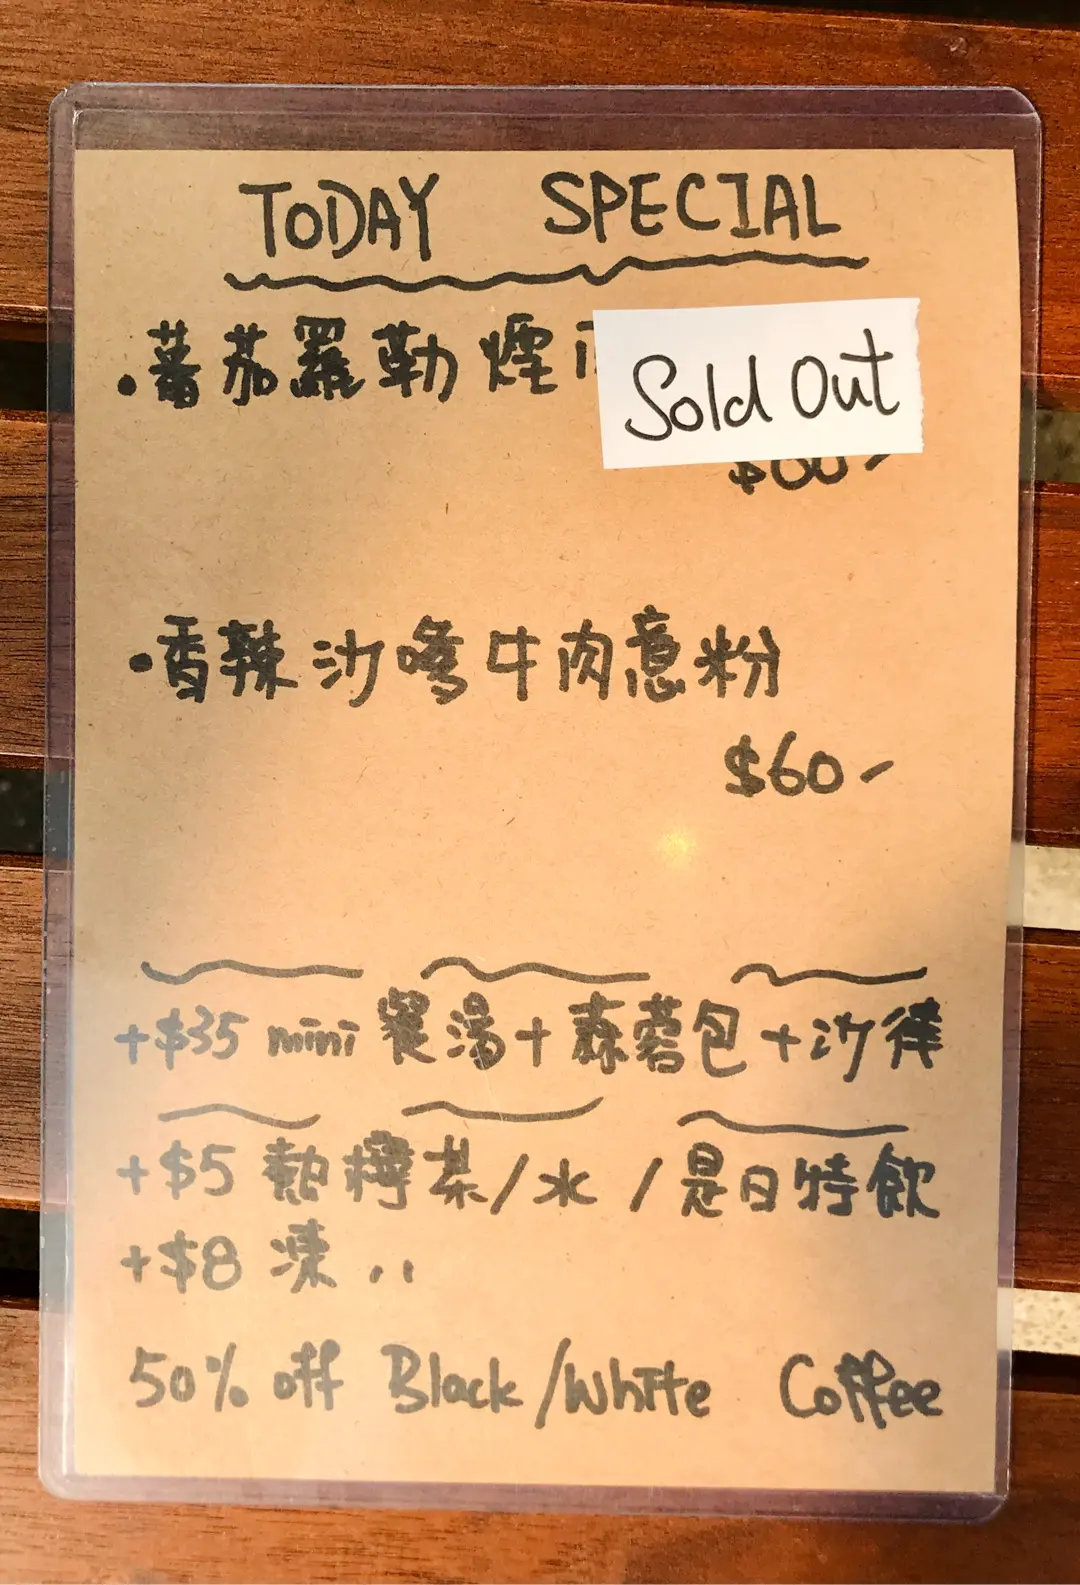 TODAY SPECIAL
·蕃茄羅勒煙
Sold Out
·香辣沙嗲牛肉意粉
$60-
+$35 mini 餐湯+蒜蓉包+沙律
+$5 熱檸茶/水/是日特飲
+$8 凍〃
50% off Black/White Coffee